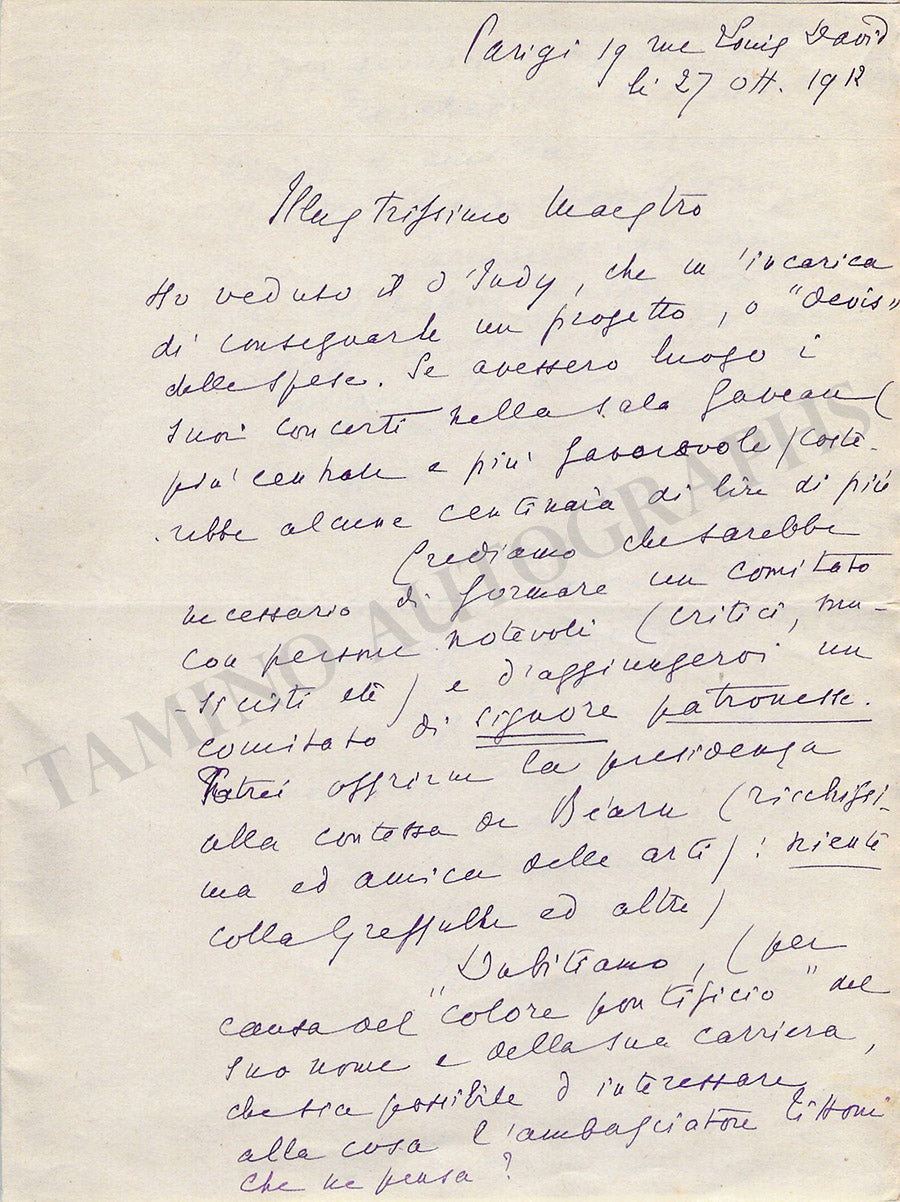 Parigi 19 rue Louis David
li 27 ott. 1912
Illustrissimo Maestro
Ho veduto il d'Indy, che m'incarica
di consegnarle un progetto, o "devis"
delle spese. Se avessero luogo i
suoi concerti nella sala Gaveau (
piu' centrale e piu' favorevole) coste-
rebbe alcune centinaia di lire di più
Crediamo che sarebbe
necessario di formare un comitato
con persone notevoli (critici, mu-
-sicisti etc) e d'aggiungervi un
comitato di signore patronesse.
Potrei offrirne la presidenza
alla contessa de Béarn (ricchissi-
ma ed amica delle arti) : niente
colla Greffulhe ed altre)
Dubitiamo, (per
causa del "colore pontificio" del
suo nome e della sua carriera,
che sia possibile d'interessare
alla cosa l'ambasciatore Tittoni
che ne pensa?
TAMINO AUTOGRAPHS